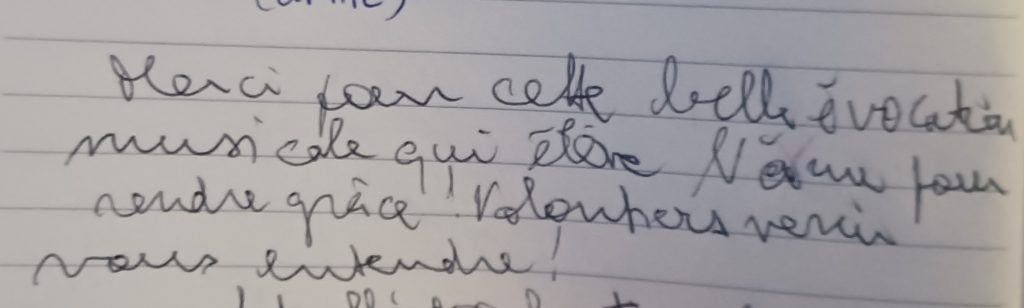 Merci pour cette belle évocation
musicale qui élève l'âme pour
rendre grâce !! Volontiers venir
vous entendre !